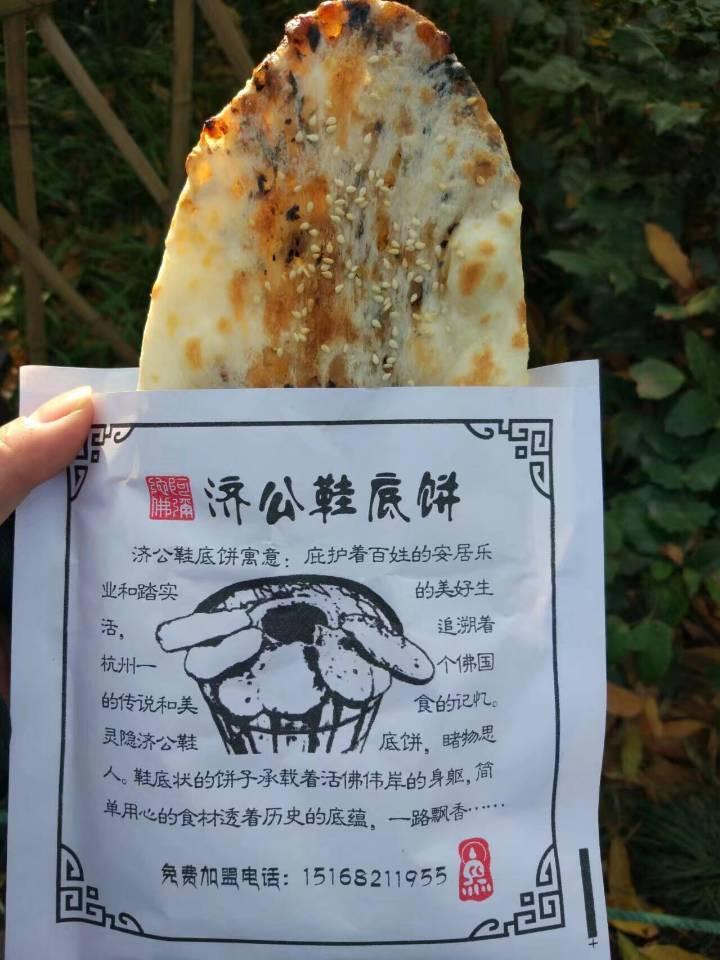 阿彌陀佛
济公鞋底饼
济公鞋底饼寓意：庇护着百姓的安居乐
业和踏实的美好生
活，追溯着
杭州一个佛国
的传说和美食的记忆。
灵隐济公鞋底饼，睹物思
人。鞋底状的饼子承载着活佛伟岸的身躯，简
单用心的食材透着历史的底蕴，一路飘香……
免费加盟电话：15168211955